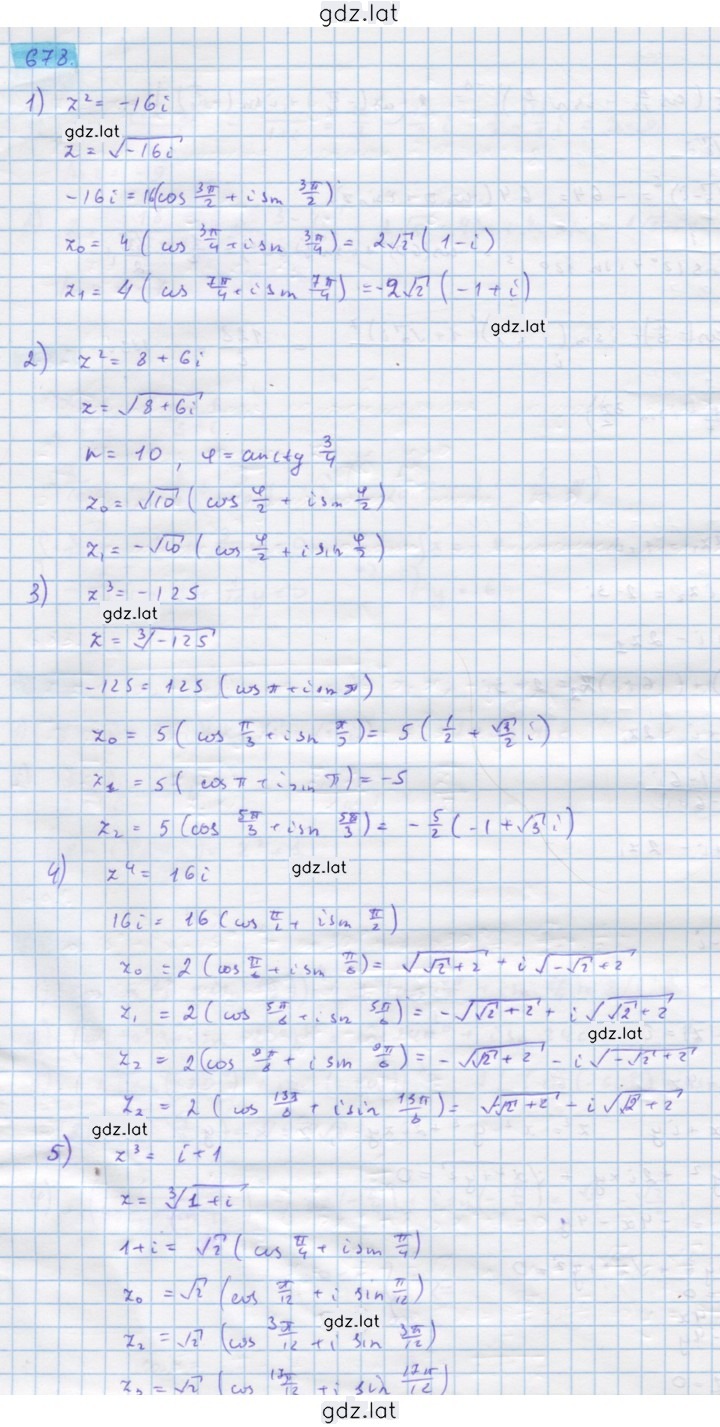 gdz.lat
678.
1) z² = -16i
gdz.lat
z = √(-16i)
-16i = 16(cos 3π/2 + i sin 3π/2)
z₀ = 4 ( cos 3π/4 + i sin 3π/4 ) = 2√2 ( 1 - i )
z₁ = 4 ( cos 7π/4 + i sin 7π/4 ) = -2√2 ( -1 + i )
gdz.lat
2) z² = 8 + 6i
z = √(8 + 6i)
r = 10 , φ = arcctg 3/4
z₀ = √10 ( cos φ/2 + i sin φ/2 )
z₁ = -√10 ( cos φ/2 + i sin φ/2 )
3) z³ = -125
gdz.lat
z = ³√(-125)
-125 = 125 ( cos π + i sin π )
z₀ = 5 ( cos π/3 + i sin π/3 ) = 5 ( 1/2 + √3/2 i )
z₁ = 5 ( cos π + i sin π ) = -5
z₂ = 5 ( cos 5π/3 + i sin 5π/3 ) = -5/2 ( -1 + √3 i )
4) z⁴ = 16i
gdz.lat
16i = 16 ( cos π/2 + i sin π/2 )
z₀ = 2 ( cos π/8 + i sin π/8 ) = √(√2 + 2) + i √(-√2 + 2)
z₁ = 2 ( cos 5π/8 + i sin 5π/8 ) = -√(√2 + 2) + i √(√2 + 2)
gdz.lat
z₂ = 2 ( cos 9π/8 + i sin 9π/8 ) = -√(√2 + 2) - i √(-√2 + 2)
z₂ = 2 ( cos 13π/8 + i sin 13π/8 ) = √(-√2 + 2) - i √(√2 + 2)
gdz.lat
5) z³ = i + 1
z = ³√(1 + i)
1 + i = √2 ( cos π/4 + i sin π/4 )
z₀ = √2 ( cos π/12 + i sin π/12 )
gdz.lat
z₂ = √2 ( cos 3π/12 + i sin 3π/12 )
z₂ = √2 ( cos 17π/12 + i sin 17π/12 )
gdz.lat